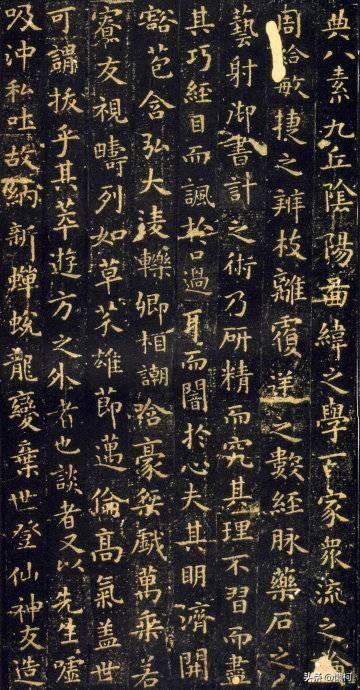 典八素九丘陰陽圖緯之學百家衆流之
周給敏捷之辨枝離覆逆之數經脉藥石之
藝射御書計之術乃研精而究其理不習而盡
其巧經目而諷於口過耳而闇於心夫其明濟開
豁苞含弘大淩轢卿相謿哈豪桀戲萬乘若
寮友視疇列如草芥雄節邁倫高氣盖世
可謂拔乎其萃遊方之外者也談者又以先生噓
吸沖和吐故納新蟬蛻龍變棄世登仙神友造
头条